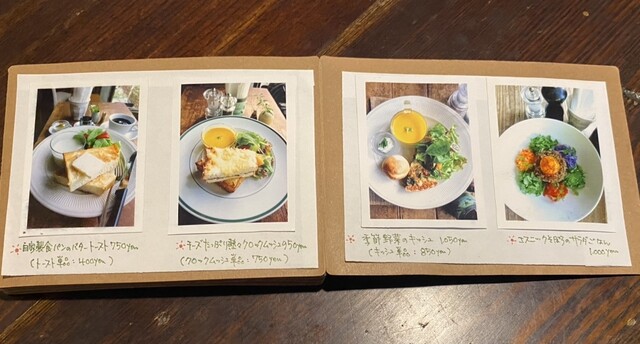 自家製食パンのバタートースト750yen
(トースト単品:400yen)
チーズたっぷり 熱々クロックムッシュ950yen
(クロックムッシュ単品:750yen)
季節野菜のキッシュ 1,050yen
(キッシュ単品:850yen)
コスミックそぼろのサラダごはん
1,000yen